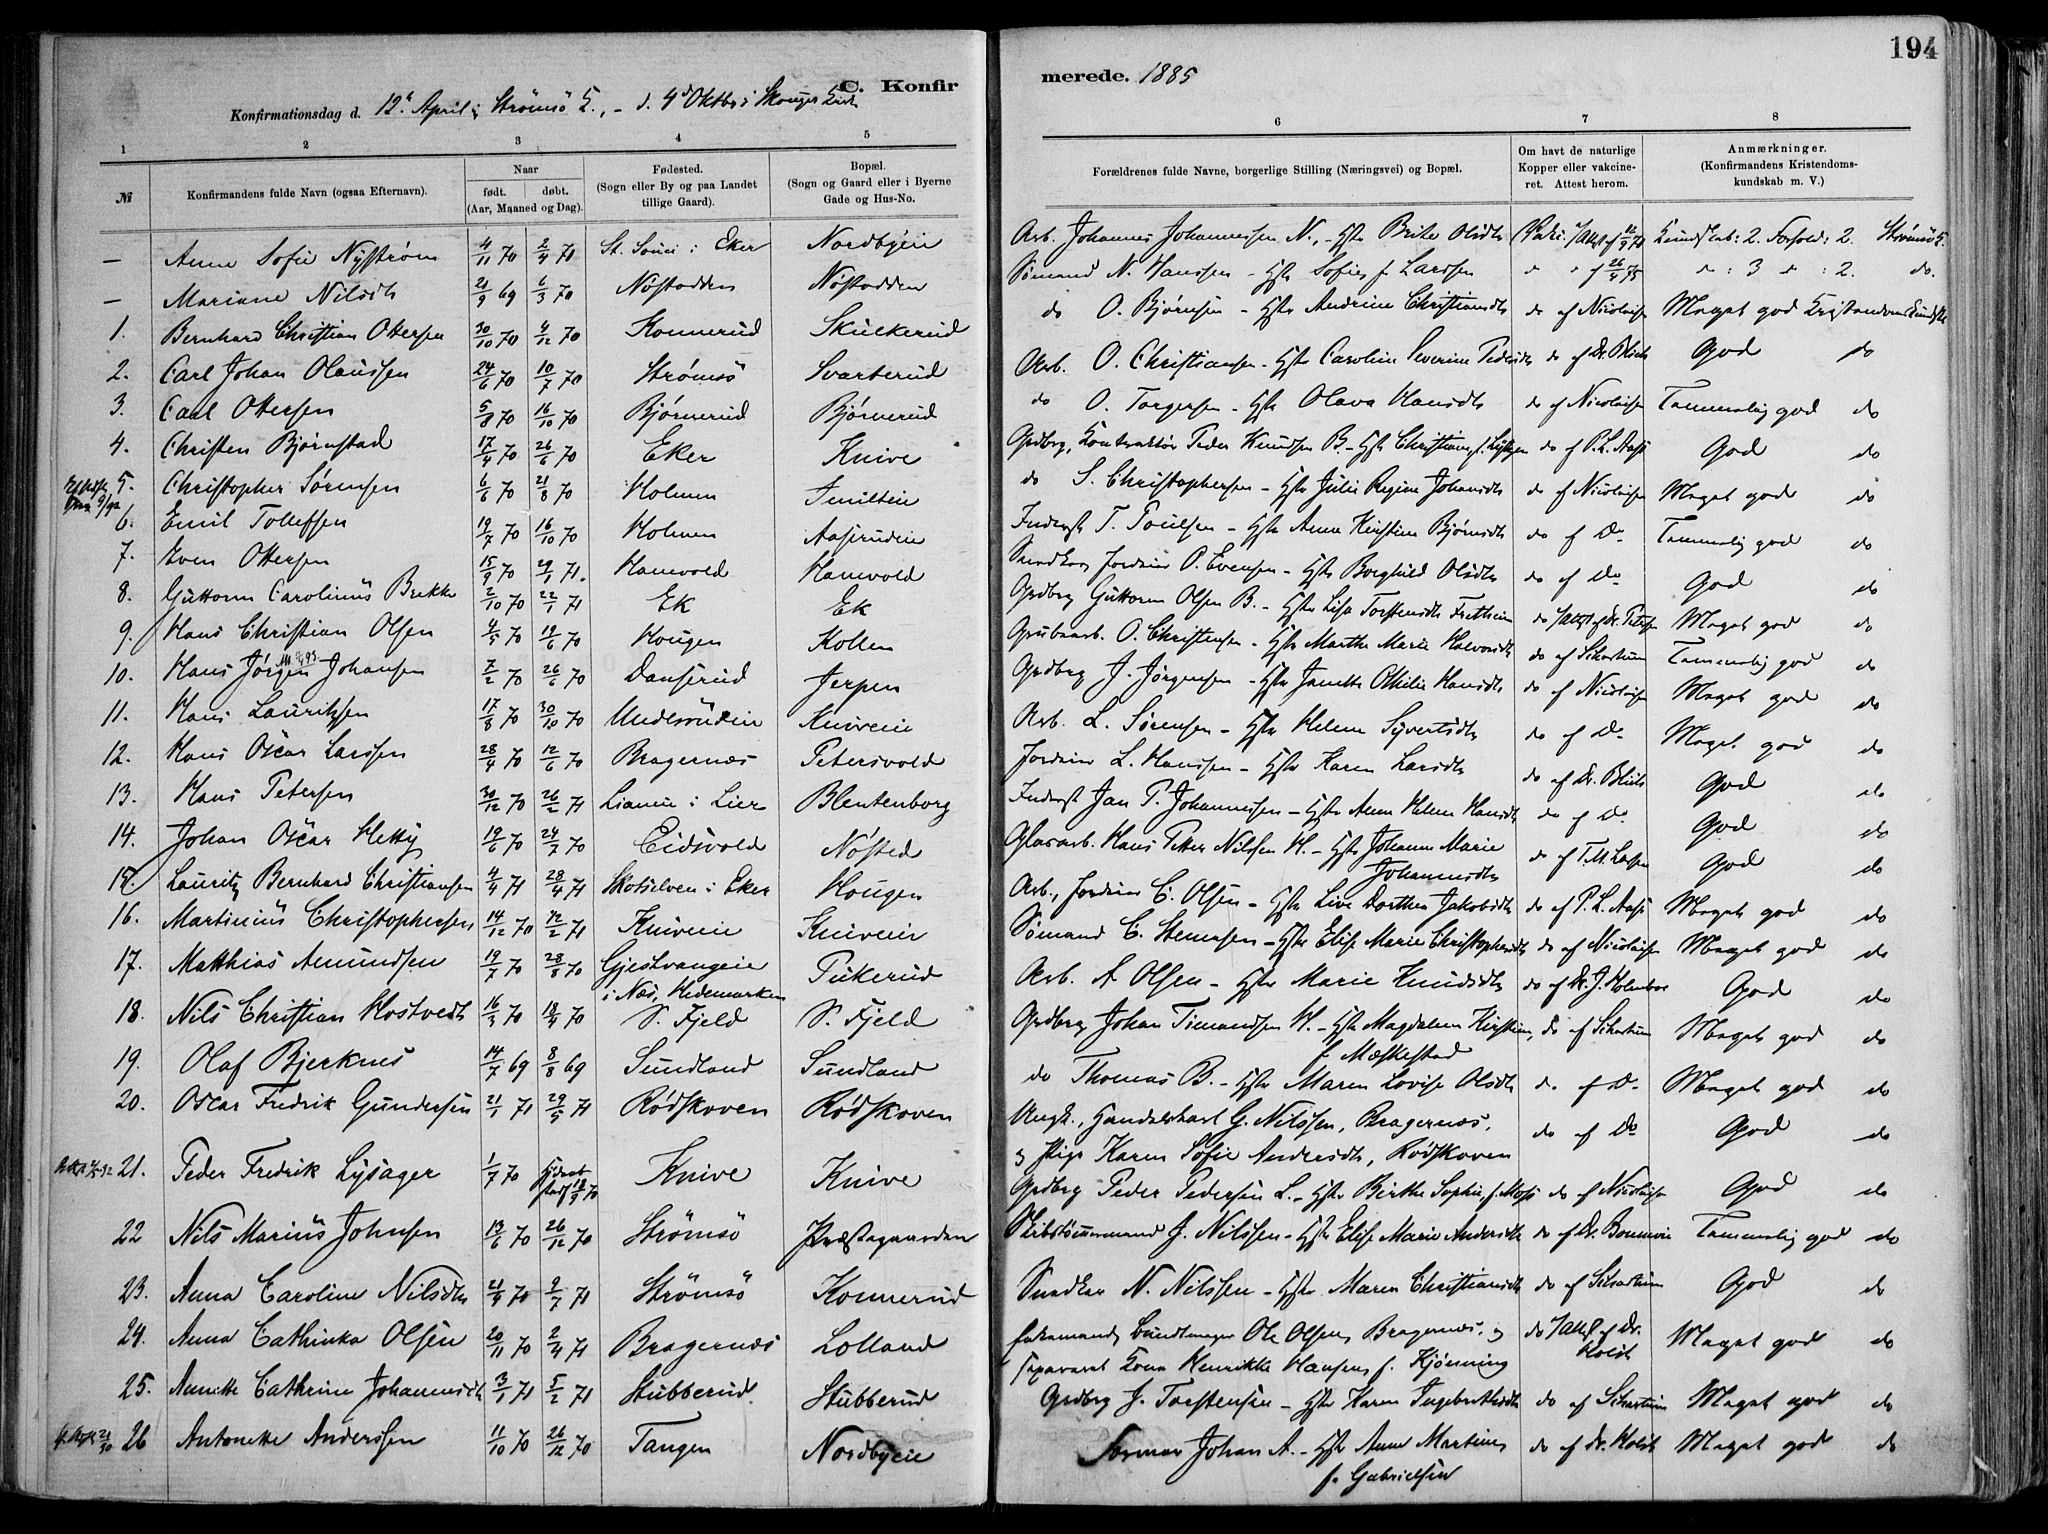 194
C. Konfirmerede. 1885
Konfirmationsdag d. 12te April i Strömsö K., - d. 4de Oktbr i Skouger Kirke
1 2 3 4 5 6 7 8
№ Konfirmandens fulde Navn (ogsaa Efternavn). Naar født. døbt. (Aar, Maaned og Dag). Fødested. (Sogn eller By og paa Landet tillige Gaard). Bopæl. (Sogn og Gaard eller i Byerne Gade og Hus-No. Forældrenes fulde Navne, borgerlige Stilling (Næringsvei) og Bopæl. Om havt de naturlige Kopper eller vakcineret. Attest herom. Anmærkninger. (Konfirmandens Kristendomskundskab m. V.)
— Anne Sofie Nyström 4/11 70 2/4 71 St. Souci i Eker Nordbyeie Arb. Johannes Johannessen N., - Hstr Brite Olsdtr Vakc. Attest af 22/9 71 Kundskab: 2. Forhold: 2. Strömsö K.
— Mariane Nilsdtr 21/9 69 6/3 70 Nøstodden Nøstodden Sømand N. Hanssen - Hstr Sofie f. Larssen " " af 26/4 75 " : 3 " : 2. do.
1. Bernhard Christian Ottersen 30/10 70 4/12 70 Konnerud Skulkerud do O. Bjørnsen - Hstr Andrine Christiansdtr do af Nicolaisen Meget god Kristendomskundsk.
2. Carl Johan Olaussen 24/6 70 10/7 70 Strømsö Svarterud Arb. O. Christiansen - Hstr Caroline Severine Pedersdtr do af Dr. Blich God do
3. Carl Ottersen 5/8 70 16/10 70 Bjørnerud Bjørnerud do O. Torgersen - Hstr Olava Hansdtr do af Nicolaisen Temmelig god do
4. Christen Bjørnstad 17/4 70 26/6 70 Eker Knive Grdbrg, Kontraktør Peder Knudsen B. - Hstr Christiane f. do af P. L. Aass God do
5. Christopher Sørensen 6/6 70 21/8 70 Holmen Smiltein do S. Christophersen - Hstr Julie Regine Johansdtr do af Nicolaisen Meget god do
6. Emil Tollefsen 19/7 70 16/10 70 Holmen Aaserudeie Inderst T. Poulsen - Hstr Anne Kirstine Bjørnsdtr do af Do Temmelig god do
7. Even Ottersen 15/9 70 29/1 71. Hanevold Hanevold Snedker Jordeier O. Evensen - Hstr Borghild Olsdtr do af Do God do
8. Guttorm Carolinus Brekke 2/10 70 22/1 71 Ek Ek Grdbrg Guttorm Olsen B. - Hstr Lisa Torstensdtr Fretheim do Attest af Dr. Petersen Meget god do
9. Hans Christian Olsen 4/5 70 19/6 70 Hougen Kollen Grubearb. O. Christensen - Hstr Marthe Marie Halvorsdtr do af Schartum Temmelig god do
10. Hans Jörgen Johansen 7/2 70 26/6 70 Danserud Jerpen Grdbrg J. Jörgensen - Hstr Janette Othilie Hansdtr do af Nicolaisen Meget god do
11. Hans Lauritzsen 17/8 70 30/10 70 Underrudein Kniveeie Arb. L. Sørensen - Hstr Helene Syvertsdtr do af Do Meget god do
12. Hans Oscar Larssen 28/4 70 12/6 70 Bragernæs Petersvold Jordeier L. Hanssen - Hstr Karen Larsdtr do af Dr. Blich God do
13. Hans Petersen 30/12 70 26/2 71 Lianeie i Lier Blentenborg Inderst Jan P. Johannessen - Hstr Anne Helene Hansdtr do af Do God do
14. Johan Oscar Hettig 19/6 70 24/7 70 Eidsvold Nøsted Glasarb. Hans Peter Nilssen H. - Hstr Johanne Marie Johannesdtr do af T. M. Larsen God do
15. Lauritz Bernhard Christiansen 4/4 71 28/4 71 Skotselven i Eker Hougen Arb., Jordeier C. Olsen - Hstr Live Dorthea Jakobsdtr do af P. L. Aass Meget god do
16. Martinius Christophersen 14/12 70 12/2 71 Kniveeie Kniveeie Sømand C. Stenersen - Hstr Elise Marie Christophersdtr do af Nicolaisen Meget god do
17. Matthias Amundsen 19/7 70 28/8 70 Gjestvangeie i Næs, Hedemarken Pukerud Arb. A Olsen - Hstr Marie Knudsdtr do af Dr. J. Holmboe God do
18. Nils Christian Hostvedt 16/3 70 18/4 70 S. Fjeld S. Fjeld Grdbrg Johan Timandsen H. - Hstr Magdalene Kirstine, f. Mæskestad do af Schartum Meget god do
19. Olaf Bjerknes 14/7 69 8/8 69 Sundland Sundland do Thomas B. - Hstr Maren Lovise Olsdtr do af Do Meget god do
20. Oscar Fredrik Gundersen 21/1 71 29/5 71 Rødskoven Rødskoven Ungk., Handelskarl G. Nilssen, Bragernæs, og Pige Karen Sofie Andersdtr, Rødskoven do af Do God do
21. Peder Fredrik Lysager 1/7 70 Hjdøbt 18/9 70 Knive Knive Grdbrg Peder Pedersen L. - Hstr Birthe Sophie, f. Moss do af Nicolaisen God do
22 Nils Marius Johnsen 13/6 70 26/12 70 Strömsö Præstegaarden Skibstömmermand J. Nilssen - Hstr Elise Marie Andersdtr do af Dr. Bonnevie Temmelig god do
23. Anna Caroline Nilsdtr 21/9 70 2/7 71 Strömsö Konnerud Snedker N. Nilssen - Hstr Maren Christiansdtr do af Schartum God do
24. Anna Cathinka Olsen 20/11 70 2/4 71 Bragernæs Lolland Ole Olsen, Bragernæs, og separeret Kone Henrikke Hansen f. Kjönning do Attest af Dr. Holst Meget god do
25. Annette Cathrine Johannesdtr 3/1 71 5/2 71 Stubberud Stubberud Grdbrg J. Torstensen - Hstr Karen Ingebrethsdtr do af Schartum Meget god do
26 Antonette Anderssen 11/10 70 26/12 70 Tangen Nordbyeie Former Johan A. - Hstr Anne Martine f. Gabrielsen do af Dr. Holst Meget god do